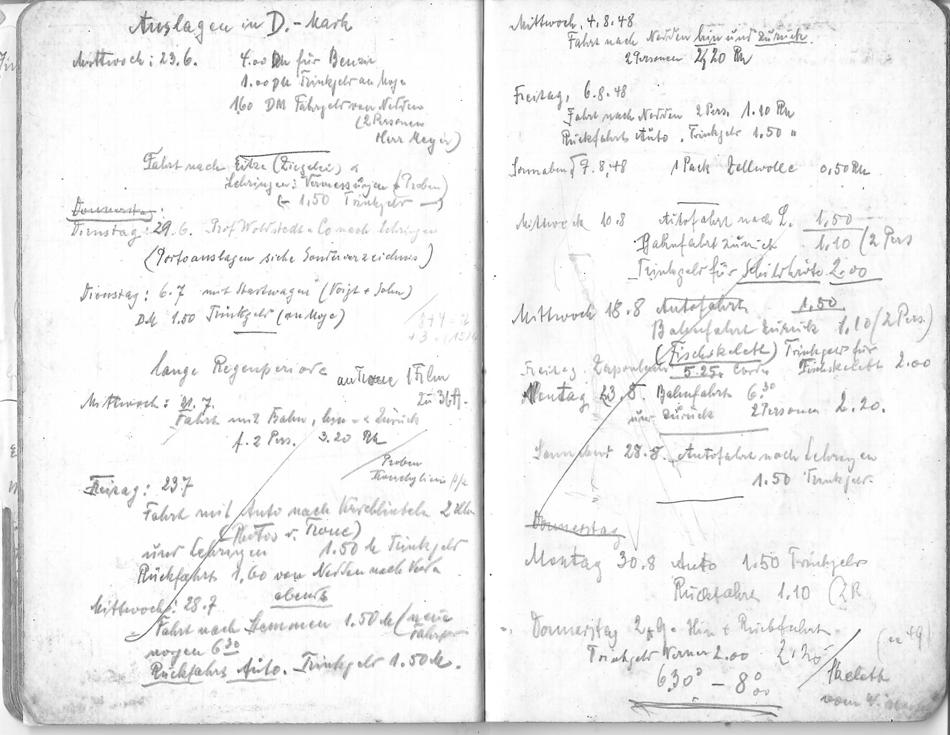 Auslagen in D.-Mark
Mittwoch: 23.6. 4.00 DM für Benzin
1.00 DM Trinkgeld an Moje
160 DM Fahrgeld von Nedden
(2 Personen
Herr Meyer)
Fahrt nach Eitze (Ziegelei)
Lehringen: Vermessungen + Proben)
(- 1,50 Trinkgeld -)
Donnerstag:
Dienstag: 29.6. Prof Woldstedt + Co nach Lehringen
(Portoauslagen siehe Sonderverzeichnis)
Dienstag: 6.7 mit (Voigt + Sohn)
DM 1.50 Trinkgeld (an Moje)
lange Regenperiode an 1 Film
Mittwoch: 21.7. zu
Fahrt mit Bahn, hin- u Zurück
f. 2 Pers. 3.20
Proben
Freitag: 23.7
Fahrt mit Auto nach Kirchlinteln
(Photos v.
und Lehringen 1.50 Trinkgeld
Rückfahrt 1,60 von Nedden nach
abends
Mittwoch: 28.7
Fahrt nach 1.50 (neue
6 30
Rückfahrt Auto. Trinkgeld 1.50
Mittwoch, 4.8.48
Fahrt nach Nedden hin und zurück.
2 Personen 2,20
Freitag, 6.8.48
Fahrt nach Nedden 2 Pers. 1.10
Rückfahrt Auto. Trinkgeld 1.50 "
Sonnabend 7.8.48 1 Pack Zellwolle 0,50
Mittwoch 10.8 Autofahrt nach L. 1,50
Bahnfahrt zurück 1.10 (2 Pers
Trinkgeld für Schildkröte 2.00
Mittwoch 18.8 Autofahrt 1,50
Bahnfahrt zurück 1.10 (2 Pers.)
(Fischskelett) Trinkgeld für
Freitag: Zaponlack 5.25 Fischskelett 2.00
Montag 23.8. Bahnfahrt 6.30
und zurück 2 Personen 2.20.
Sonnabend 28.8. Autofahrt nach Lehringen
1.50 Trinkgeld.
Donnerstag
Montag 30.8 Auto 1.50 Trinkgeld
Rückfahrt 1.10
Donnerstag 2.9. Hin + Rückfahrt
Trinkgeld Werner 2.00 2,20
Skelett
6 30 - 8 00
vom